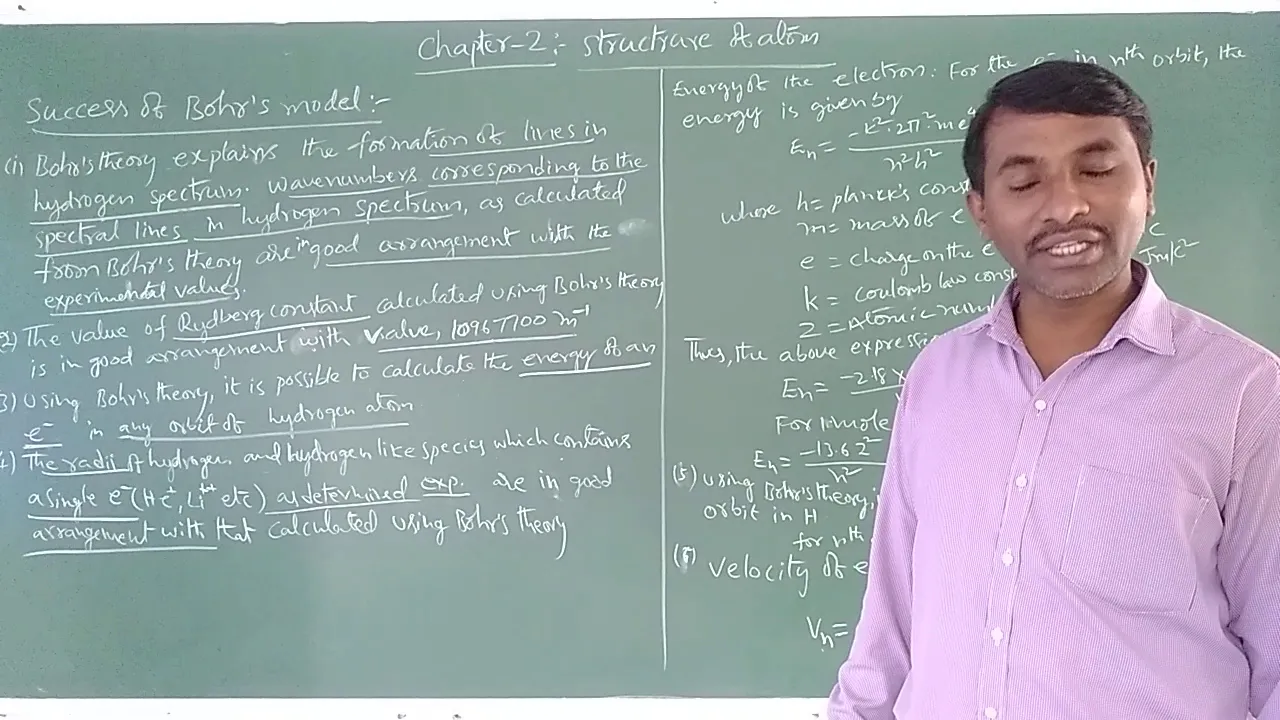 Chapter-2:- Structure of atom
Success of Bohr's model:-
(1) Bohr's theory explains the formation of lines in
hydrogen spectrum. Wavenumbers corresponding to the
spectral lines in hydrogen spectrum, as calculated
from Bohr's theory are in good arrangement with the
experimental values.
(2) The value of Rydberg constant calculated using Bohr's theory
is in good arrangement with value, 10967700 m⁻¹
3) Using Bohr's theory, it is possible to calculate the energy of an
e⁻ in any orbit of hydrogen atom
(4) The radii of hydrogen and hydrogen like species which contains
a single e⁻ (He⁺, Li⁺⁺ etc) as determined exp. are in good
arrangement with that calculated using Bohr's theory
Energy of the electron: For the e⁻ in nth orbit, the
energy is given by
En = -k²·2π²·me⁴
n²h²
where h = planck's
m = mass of e
e = charge on the e C
k = Coulomb law Jm/c²
Z = Atomic
Thus, the above
En = -2.18 x
For 1 mole
En = -13.6 Z²
n²
(5) Using Bohr's theory,
orbit in H
for nth
(6) Velocity of e
Vn =